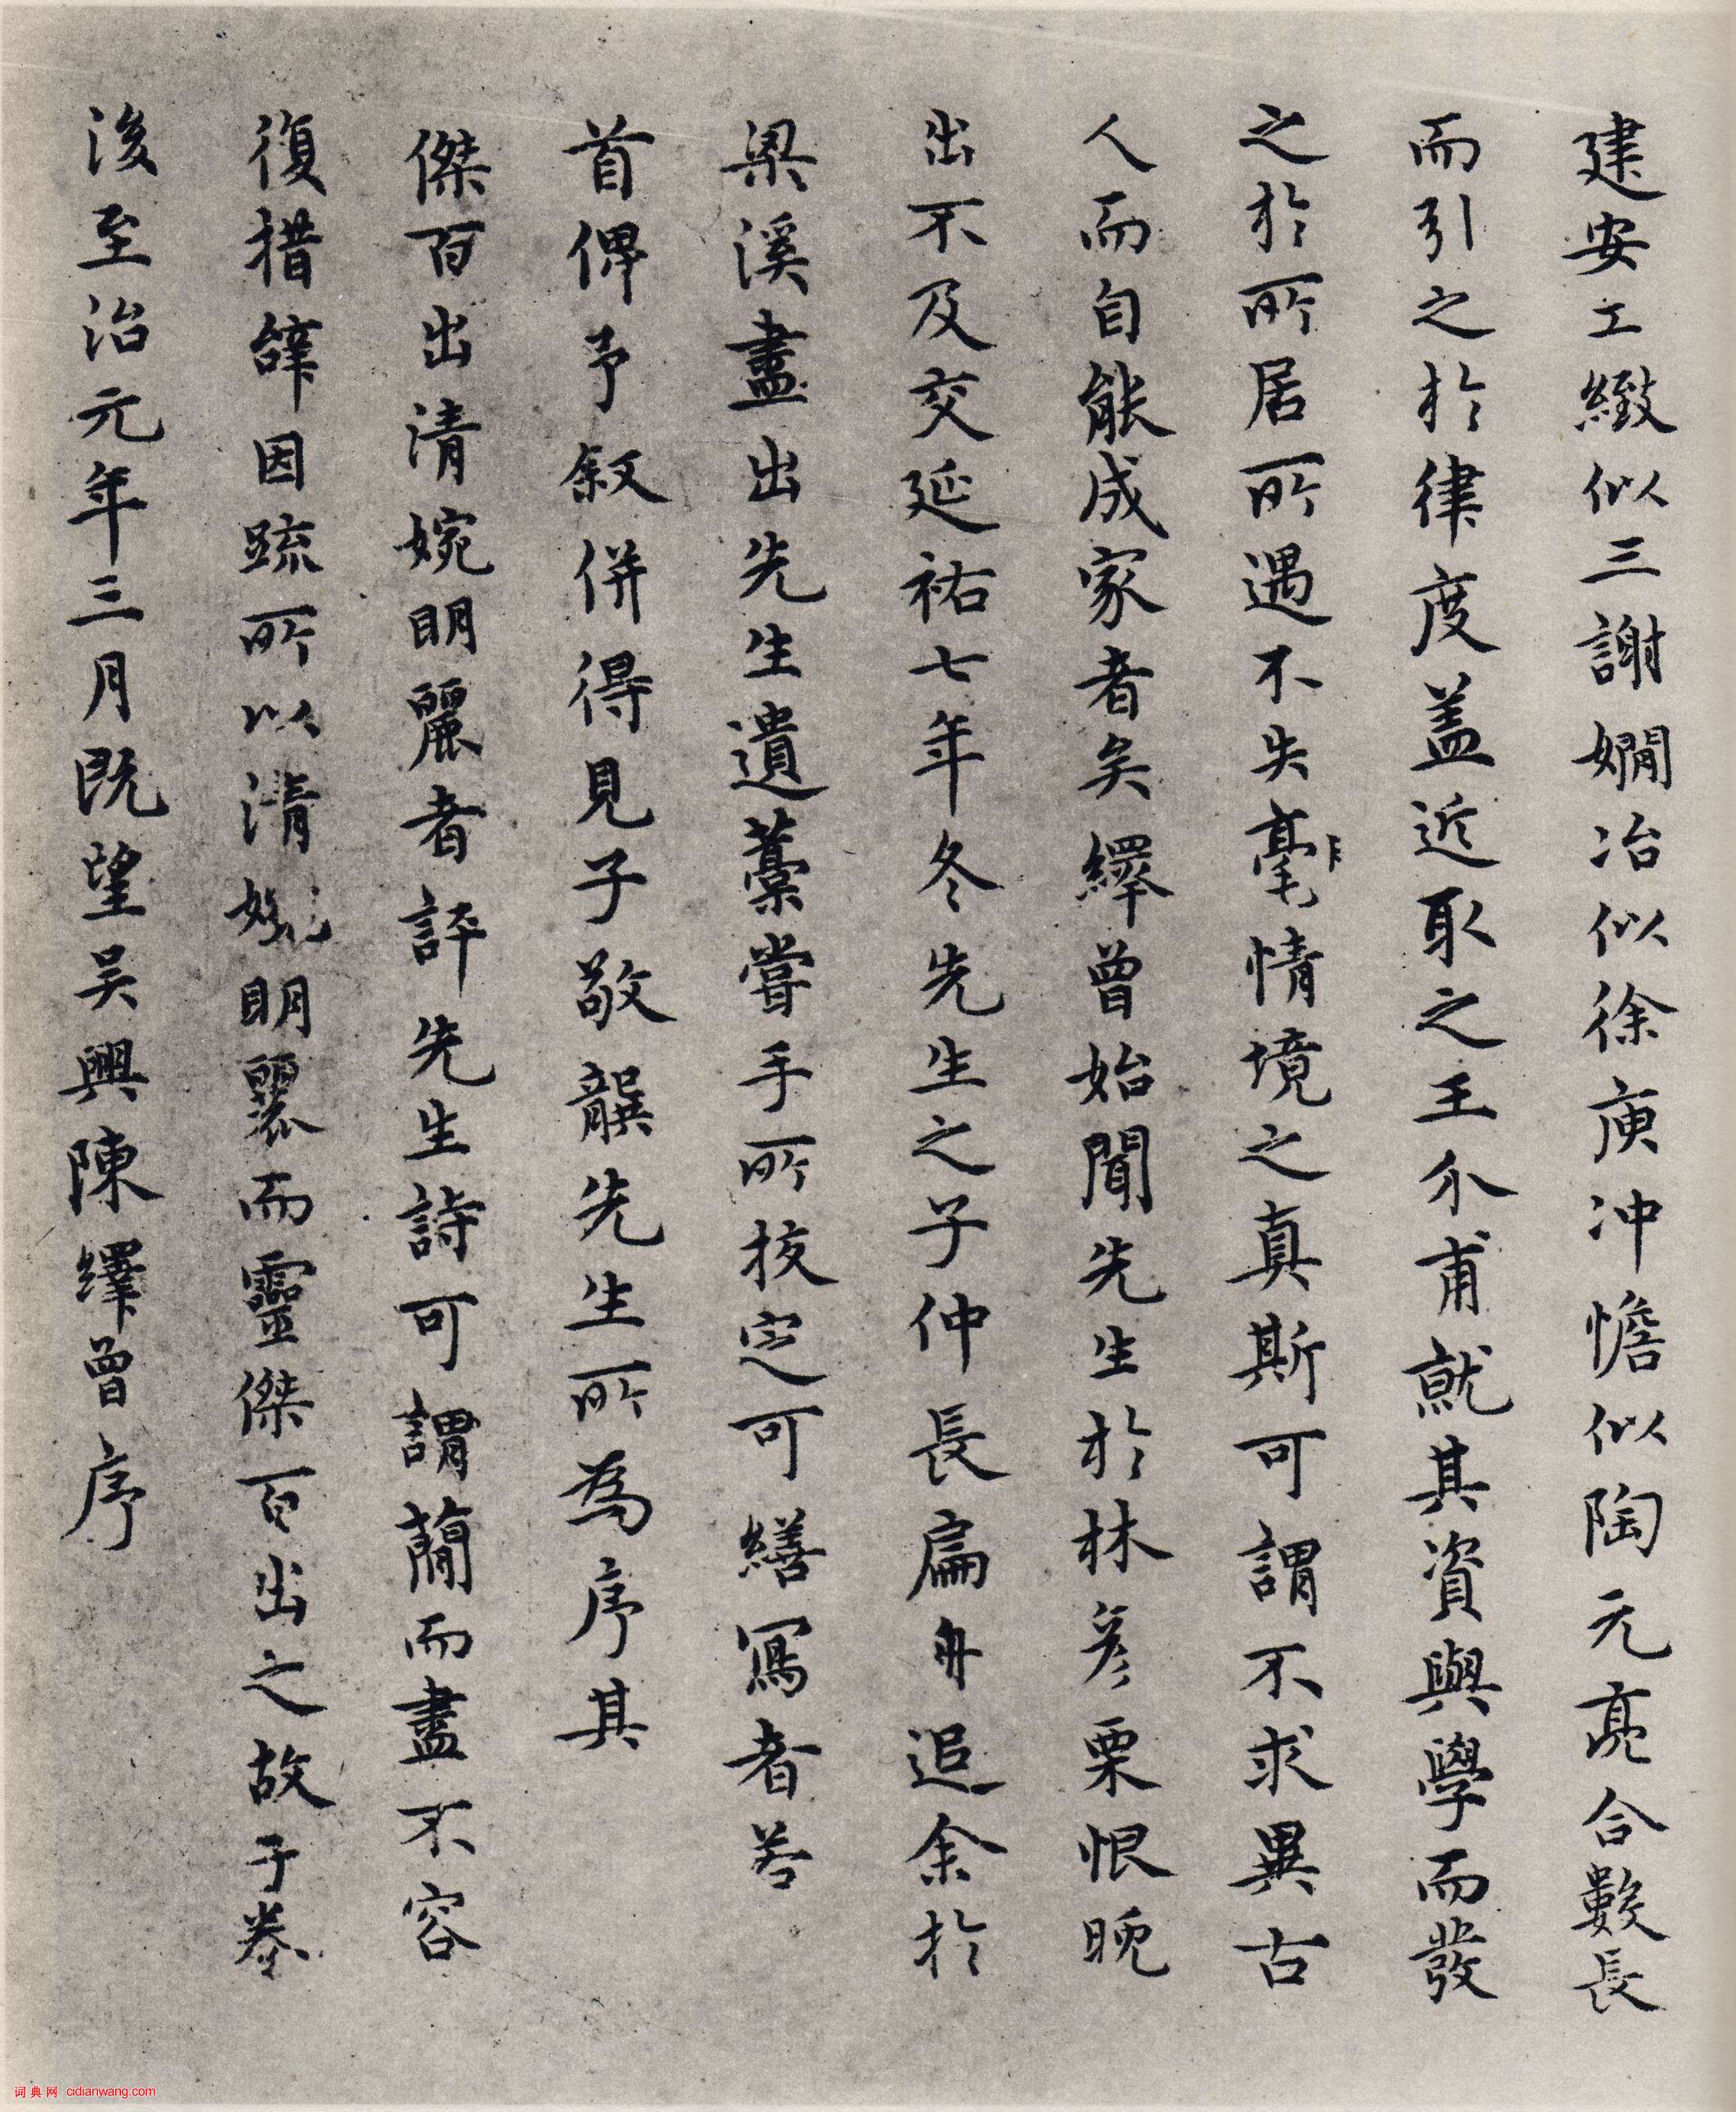 建安工緻似三謝嫺冶似徐庾沖憺似陶元亮合數長
而引之於律度蓋近取之王介甫就其資與學而發
之於所居所遇不失毫情境之真斯可謂不求異古
人而自能成家者矣繹曾始聞先生於林彥栗恨晚
出不及交延祐七年冬先生之子仲長扁舟追余於
梁溪盡出先生遺藁嘗手所挍定可繕寫者若
首俾予叙併得見子敬龔先生所為序其
傑百出清婉明麗者評先生詩可謂蕳而盡不容
復措辭因疏所以清婉明麗而靈傑百出之故于卷
後至治元年三月既望吴興陳繹曾序
词典网 cidianwang.com